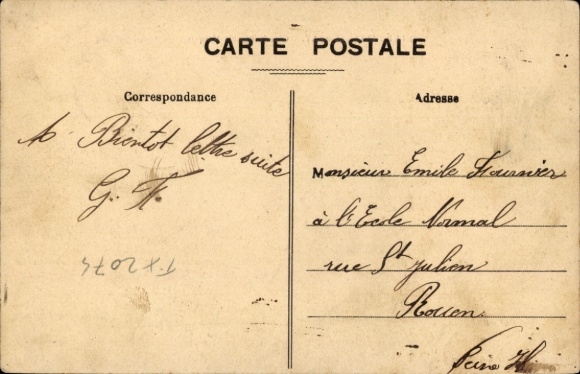 CARTE POSTALE
Correspondance
Adresse
A Bientot lettre suite
G. F.
Monsieur Emile Fournier
à l'Ecole Normal
rue St Julien
Rouen
Seine
TX2074